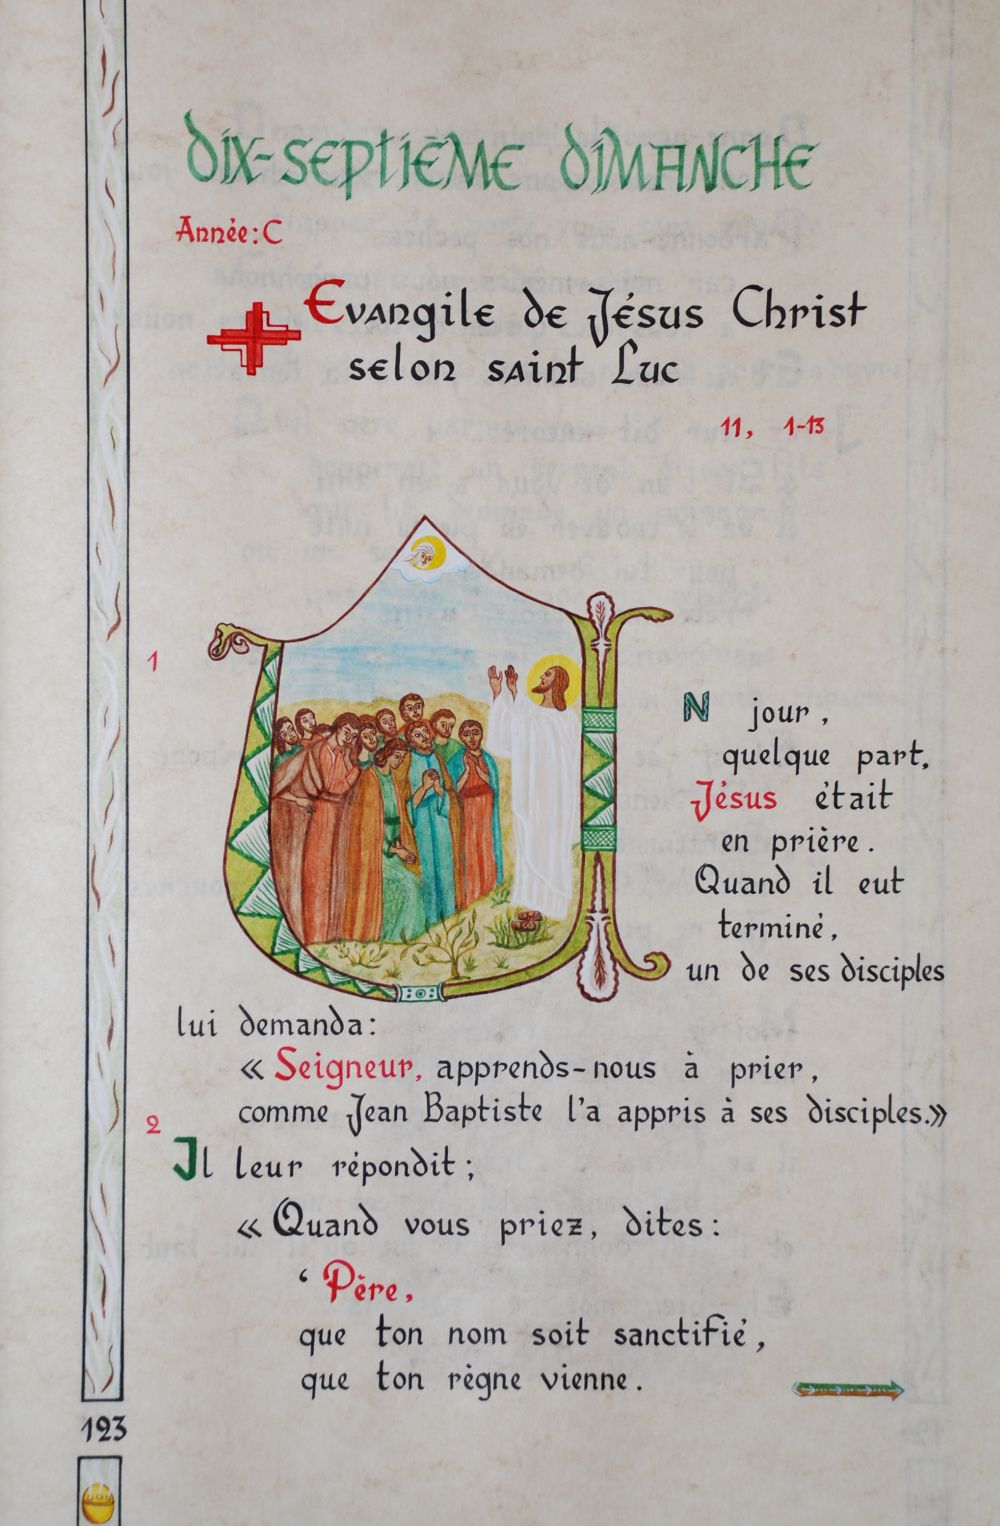 DIX-SEPTIÈME DIMANCHE
Année: C
Evangile de Jésus Christ
selon saint Luc
11, 1-13
1
UN jour,
quelque part,
Jésus était
en prière.
Quand il eut
terminé,
un de ses disciples
lui demanda:
« Seigneur, apprends-nous à prier,
comme Jean Baptiste l'a appris à ses disciples.»
2
Il leur répondit;
« Quand vous priez, dites:
‘ Père,
que ton nom soit sanctifié,
que ton règne vienne.
123